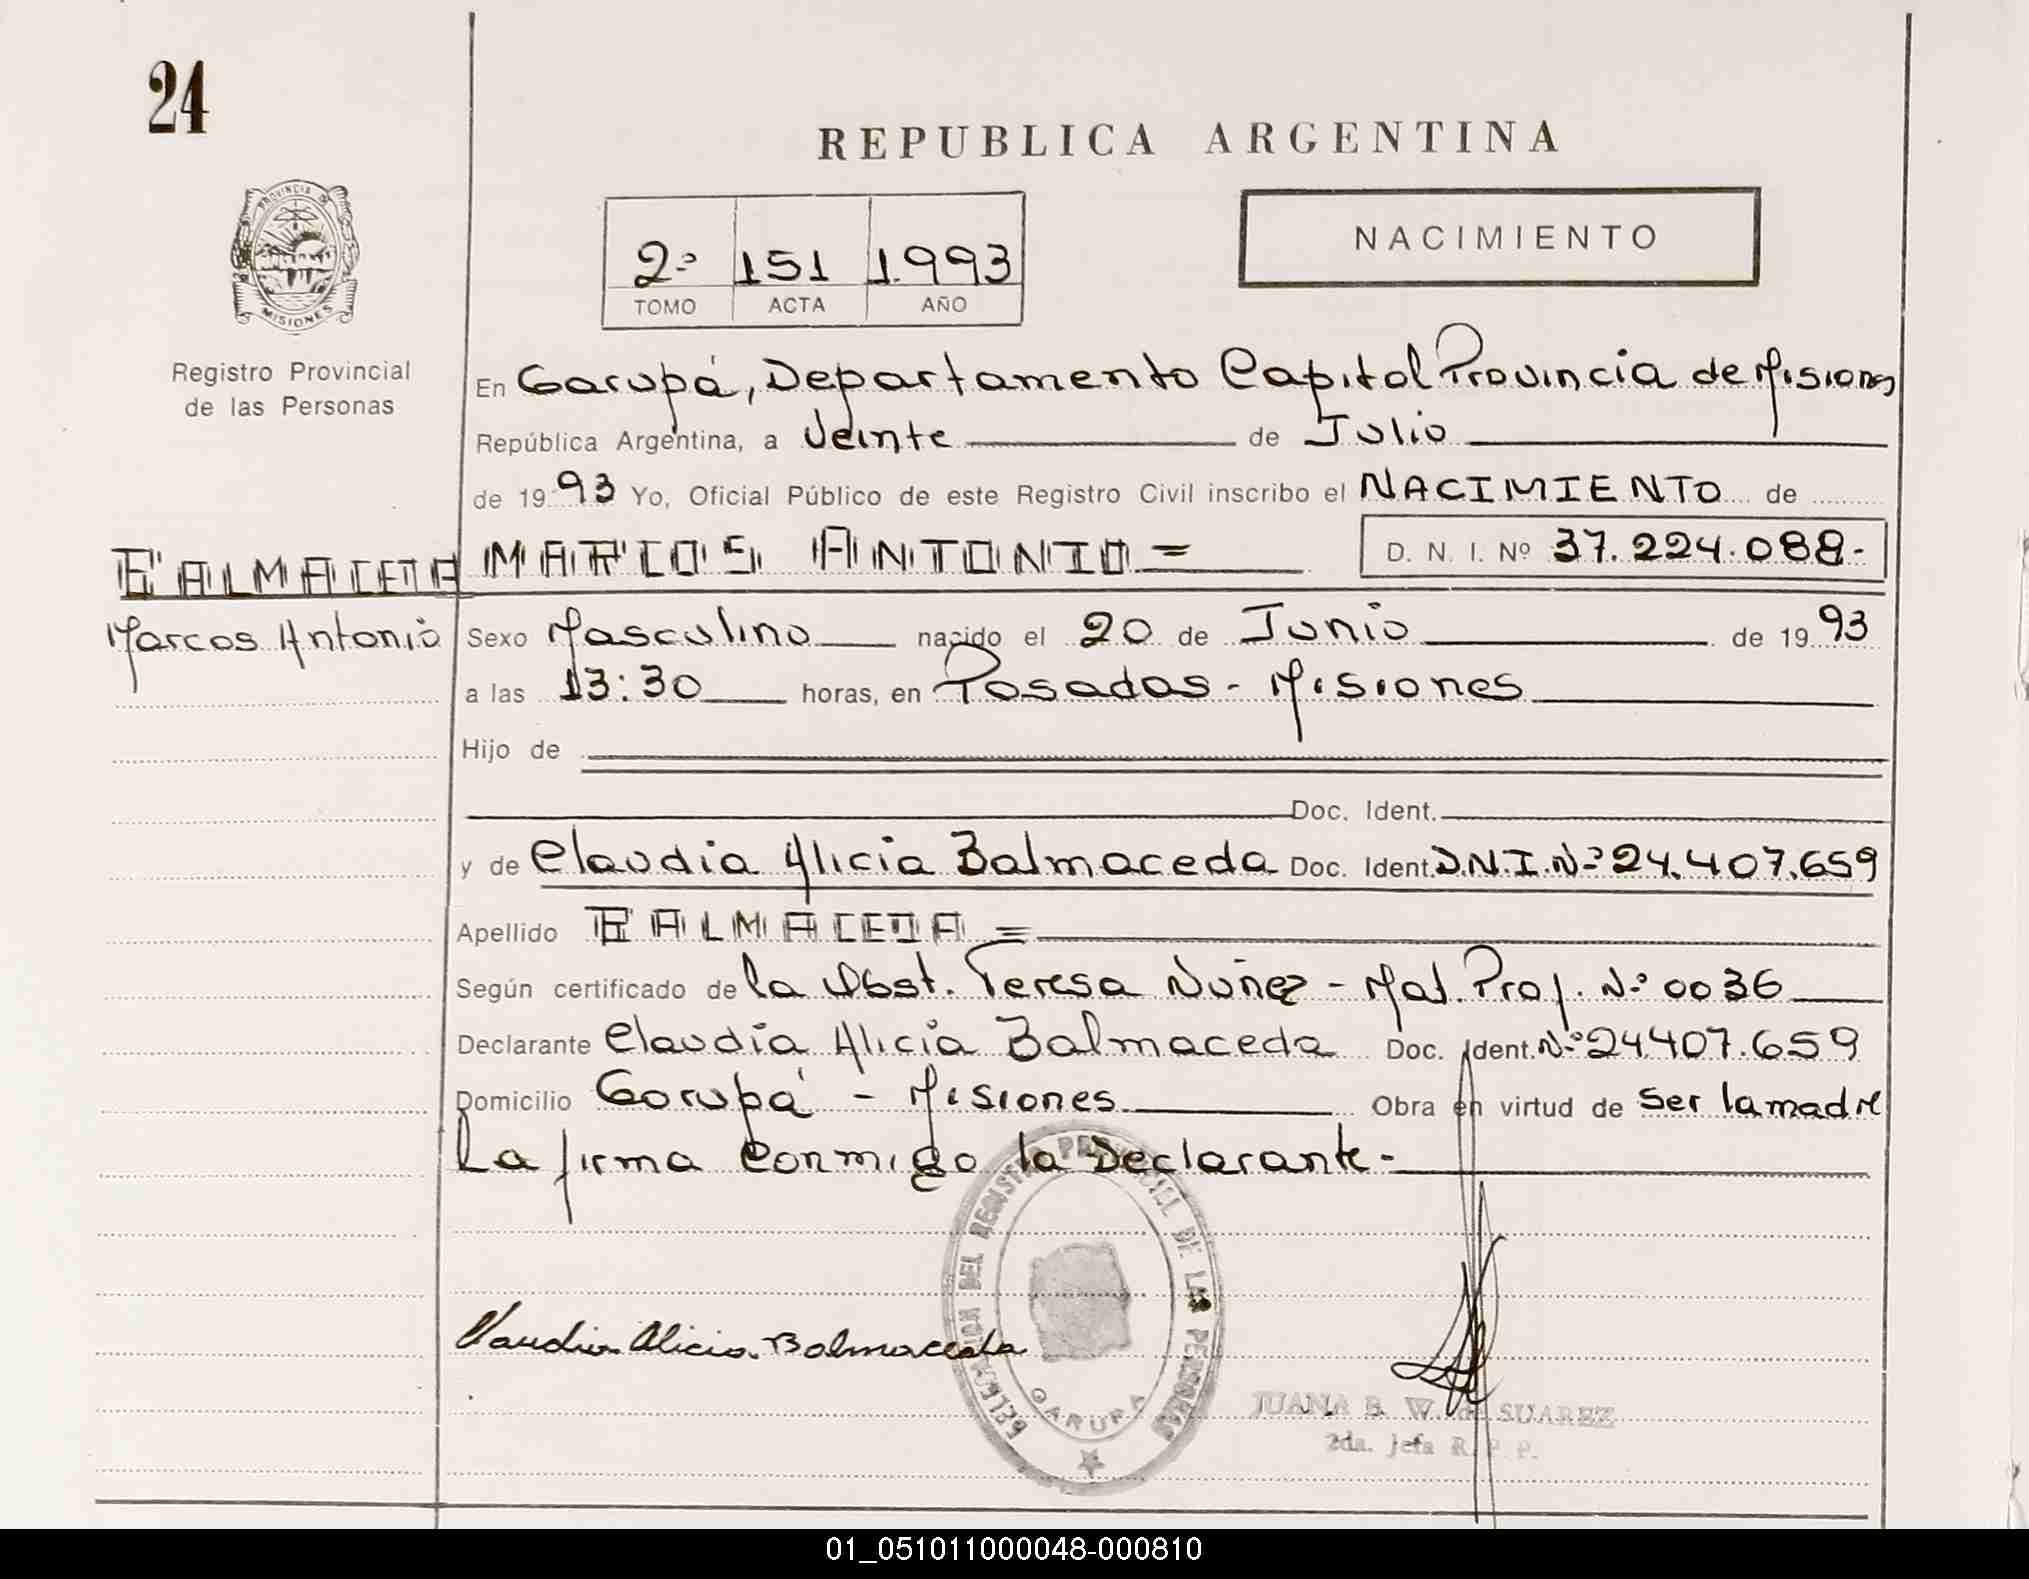 24
REPUBLICA ARGENTINA
PROVINCIA DE
MISIONES
2º 151 1.993
TOMO ACTA AÑO
NACIMIENTO
Registro Provincial
de las Personas
En Garupá, Departamento Capital Provincia de Misiones
República Argentina, a Veinte de Julio
de 1993 Yo, Oficial Público de este Registro Civil inscribo el NACIMIENTO de
BALMACEDA MARCOS ANTONIO = D. N. I. Nº 37.224.088.-
Marcos Antonio
Sexo Masculino nacido el 20 de Junio de 1993
a las 13:30 horas, en Posadas - Misiones
Hijo de
Doc. Ident.
y de Claudia Alicia Balmaceda Doc. Ident. D.N.I.Nº 24.407.659
Apellido BALMACEDA =
Según certificado de la Obst. Teresa Nuñez - Mat. Prof. Nº 0036
Declarante Claudia Alicia Balmaceda Doc. Ident. Nº 24.407.659
Domicilio Garupá - Misiones Obra en virtud de ser la madre
La firma conmigo la Declarante.-
Claudia Alicia Balmaceda
DEL REGISTRO PROVINCIAL DE LAS PERSONAS
GARUPA
JUANA B. W. de SUAREZ
2da. Jefa R. P. P.
01_051011000048-000810